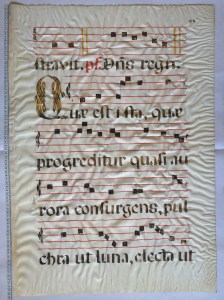 stravit. ps. Dñs regn.
Quæ est ista, quæ
progreditur quasi au
rora consurgens, pul
chra ut luna, electa ut